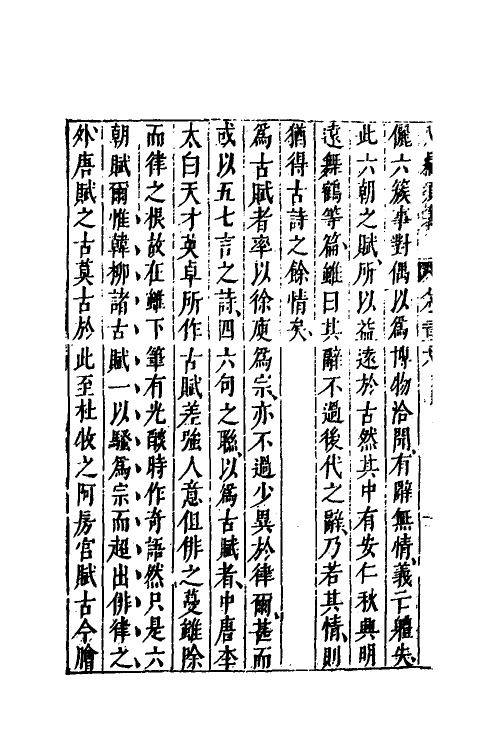 儷六簇事對偶以爲博物洽聞有辭無情義亡體失
此六朝之賦所以益遠於古然其中有安仁秋興明
遠舞鶴等篇雖曰其辭不過後代之辭乃若其情則
猶得古詩之餘情矣
爲古賦者率以徐庾爲宗亦不過少異於律爾甚而
或以五七言之詩四六句之聯以爲古賦者中唐李
太白天才英卓所作古賦差强人意但俳之蔓雖除
而律之根故在雖下筆有光燄時作奇語然只是六
朝賦爾惟韓柳諸古賦一以騷爲宗而超出俳律之
外唐賦之古莫古於此至杜牧之阿房宮賦古今膾